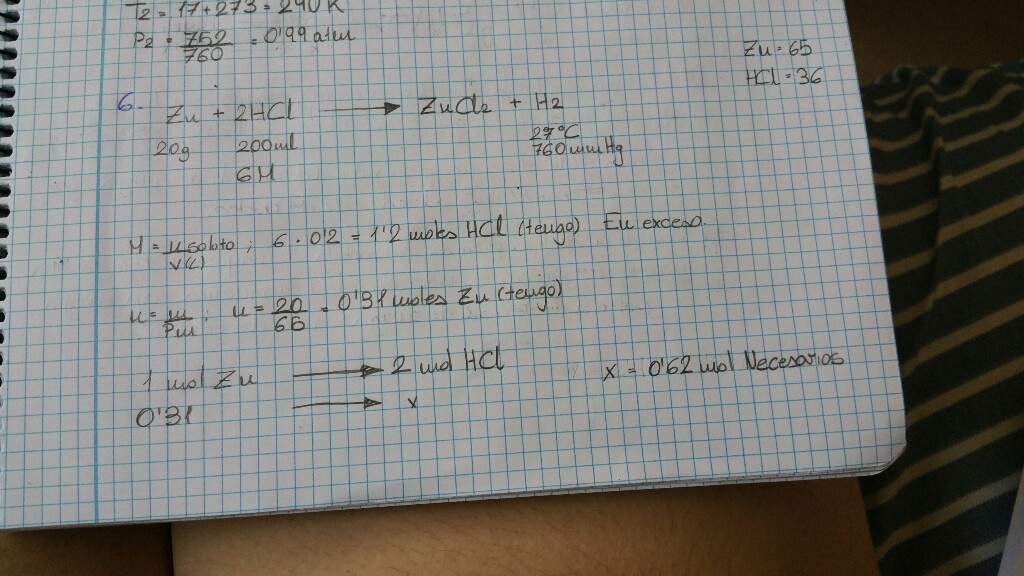 T2 = 17+273 = 290 K
P2 = 752/760 = 0'99 atm
Zn = 65
HCl = 36
6. Zn + 2HCl → ZnCl2 + H2
20g 200ml 27ºC
760mmHg
6M
M = nsoluto/V(L) ; 6 · 0'2 = 1'2 moles HCl (tengo) En exceso.
n = m/Pm ; n = 20/65 = 0'31 moles Zn (tengo)
1 mol Zn → 2 mol HCl x = 0'62 mol Necesarios
0'31 → x